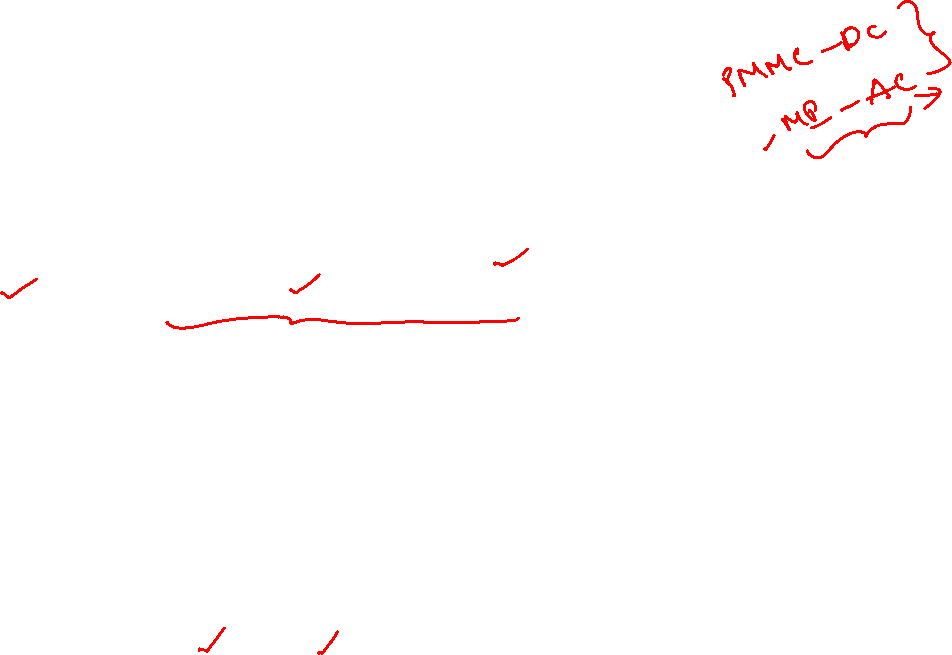 PMMC - DC
MP - AC